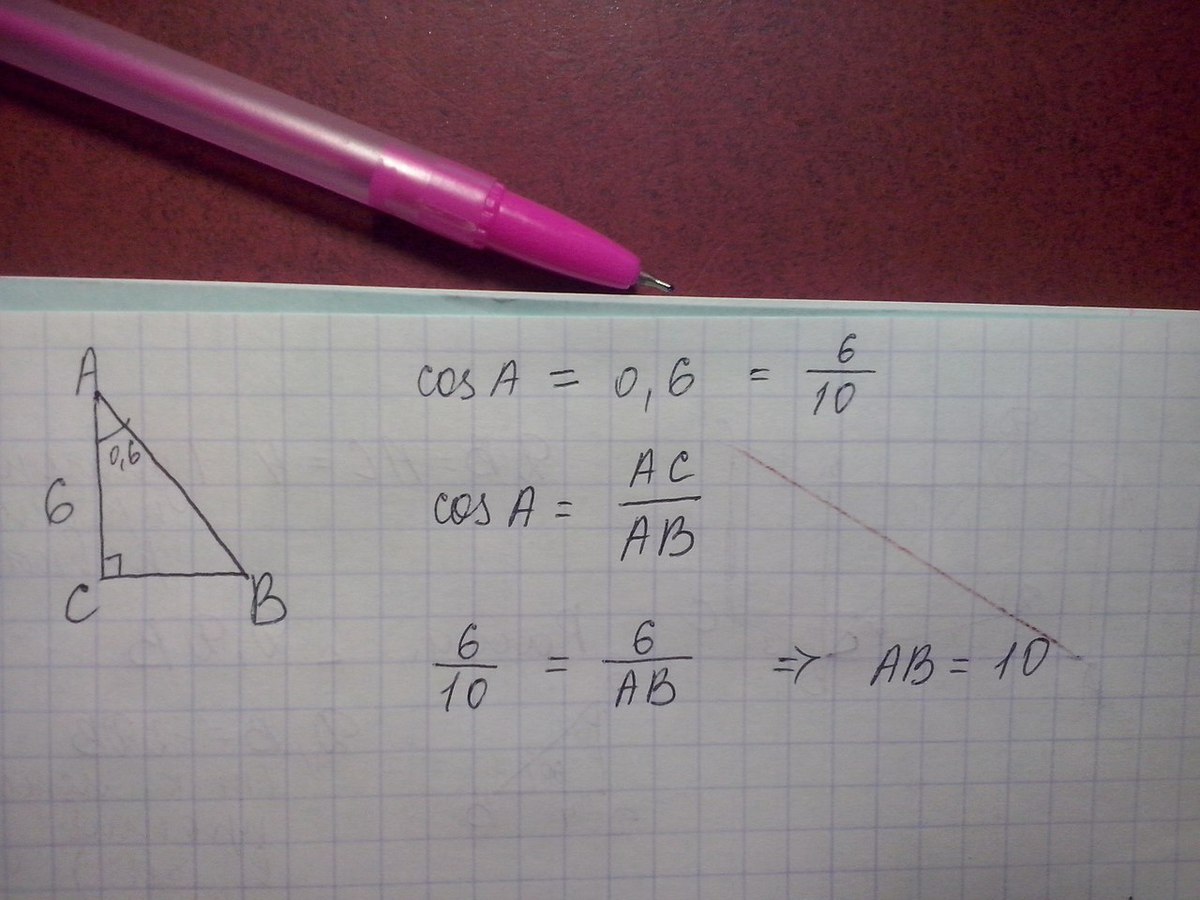 A
0,6
6
C
B
cos A = 0,6 = 6/10
cos A = AC/AB
6/10 = 6/AB ⇒ AB = 10